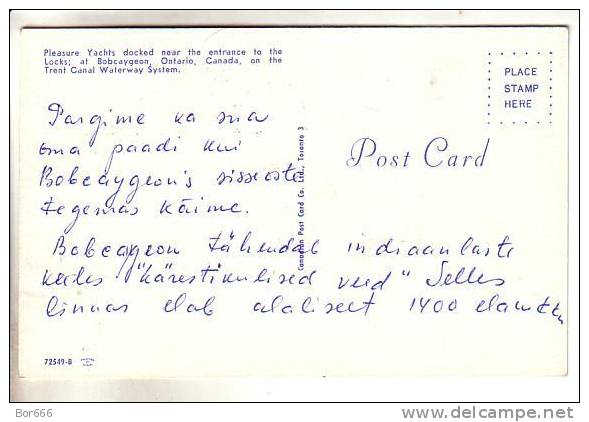 Pleasure Yachts docked near the entrance to the
Locks; at Bobcaygeon, Ontario, Canada, on the
Trent Canal Waterway System.
PLACE
STAMP
HERE
Pargime ka siia
oma paadi kui
Bobcaygeon's sisseoste
tegemas käime.
Post Card
Canadian Post Card Co. Ltd., Toronto 3
Bobcaygeon tähendab indiaanlaste
keeles "kärestikulised veed" Selles
linnas elab alaliselt 1400 elanikku
72549-B
Bor666
www.delcampe.net